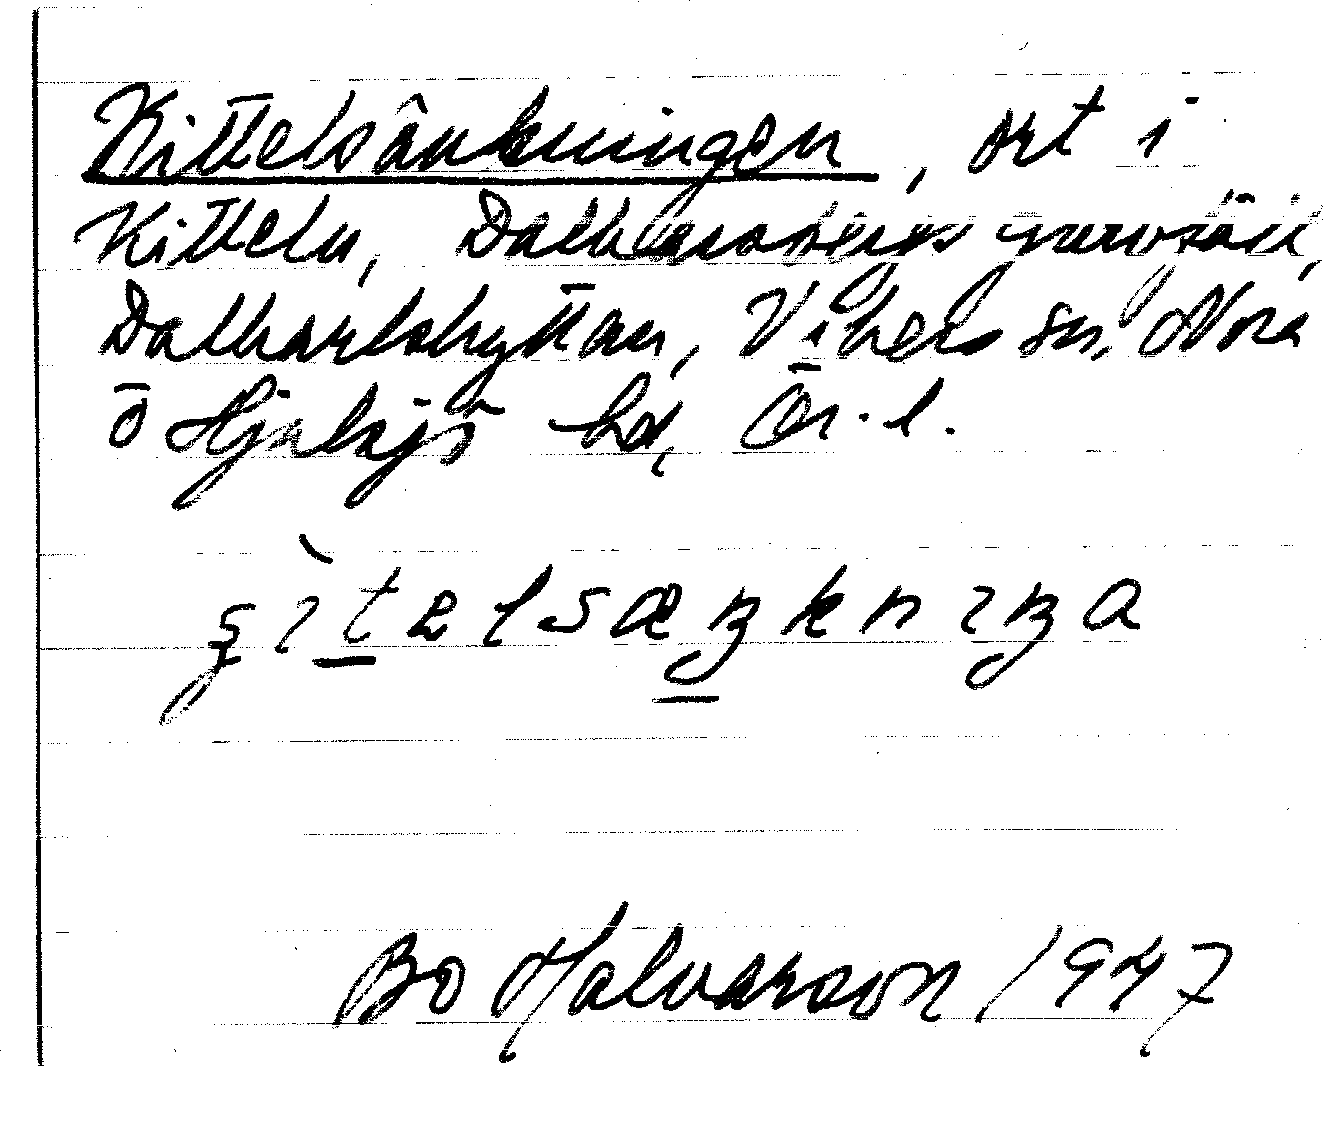 Kittelsänkningen, ort i
Kitteln, Dalkarlsbergs gruvfält,
Dalkarlshyttan, Vikers sn. Nora
o Hjulsjö hd, Ör. l.
Bo Halvarson 1947